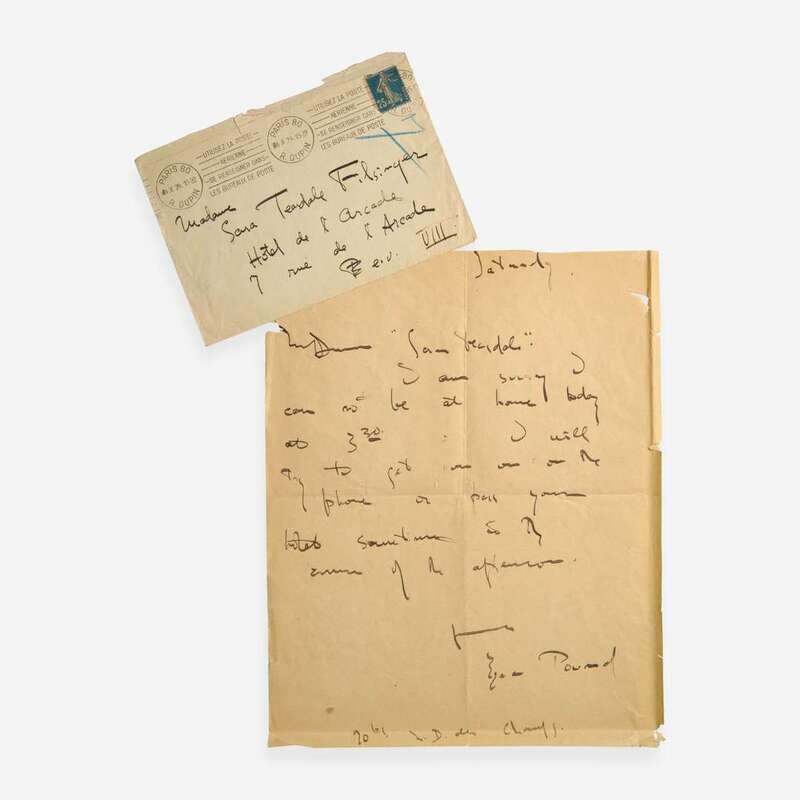 UTILISEZ LA POSTE
AERIENNE
SE RENSEIGNER DANS
LES BUREAUX DE POSTE
PARIS 80
R. DUPIN
UTILISEZ LA POSTE
AERIENNE
SE RENSEIGNER DANS
LES BUREAUX DE POSTE
PARIS 80
R. DUPIN
25
Madame
Sara Teasdale Filsinger
Hôtel de l'Arcade
7 rue de l'Arcade
e.v. VIII
Saturday.
"Sara Teasdale":
I am sorry I
can not be at home today
at 3.30. I will
try to get you on the
phone or pass your
hotel sometime in the
course of the afternoon.
Ezra Pound
70 bis N. D. des Champs.